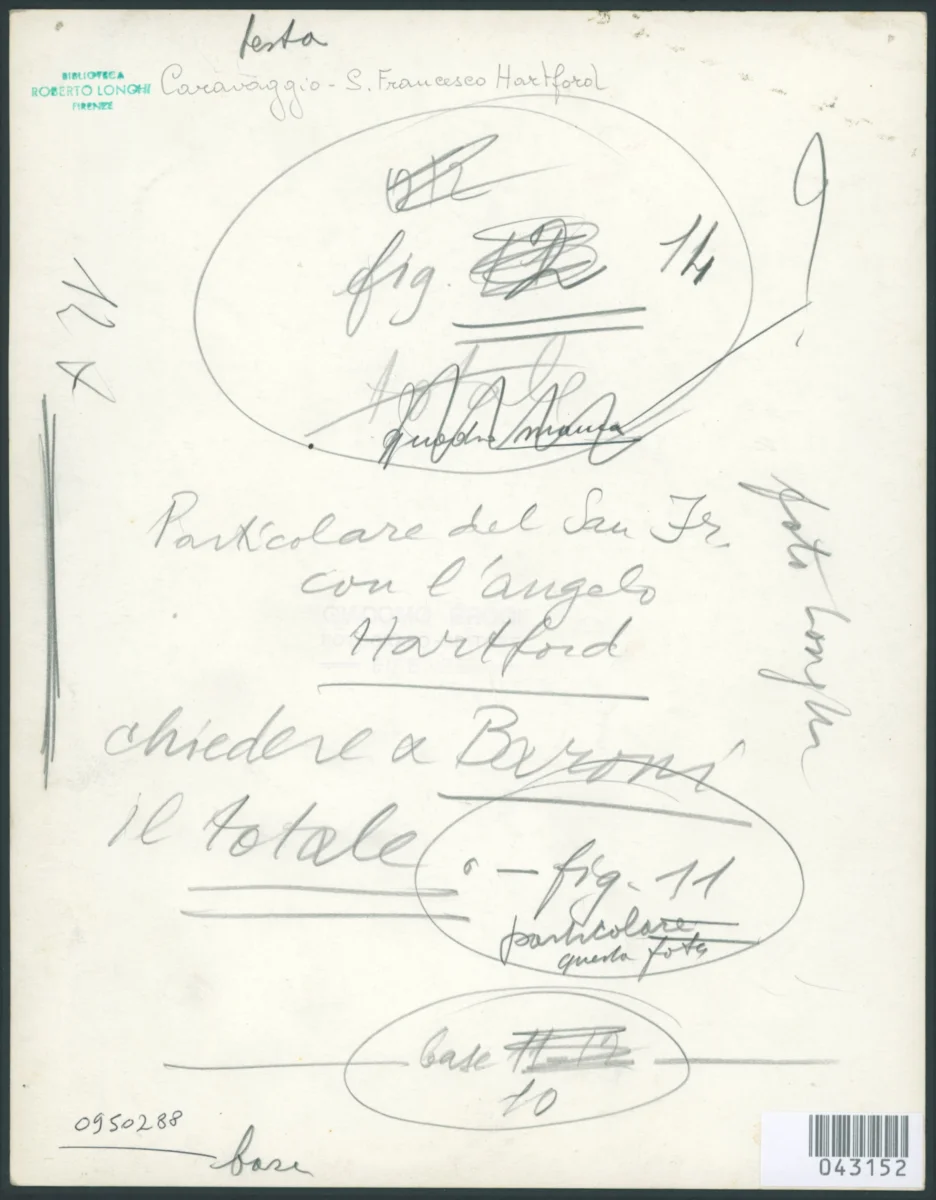 testa
BIBLIOTECA
ROBERTO LONGHI
FIRENZE
Caravaggio - S. Francesco Hartford
fig. 14
totale
questo manca
Particolare del San Fr.
con l'angelo
Hartford
foto Longhi
chiedere a Baroni
il totale
— fig. 11
particolare
questa foto
base
10
0950288
base
043152